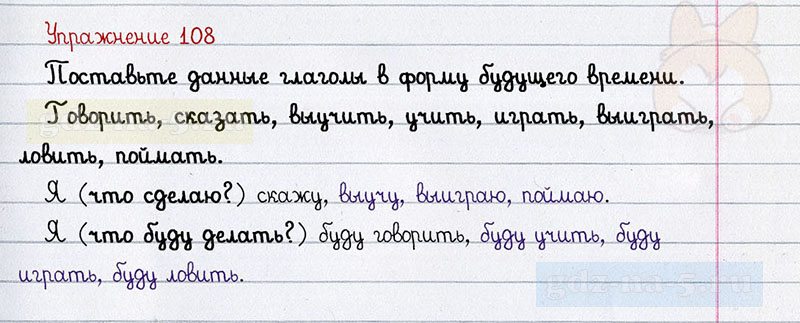 Упражнение 108
Поставьте данные глаголы в форму будущего времени.
Говорить, сказать, выучить, учить, играть, выиграть,
ловить, поймать.
Я (что сделаю?) скажу, выучу, выиграю, поймаю.
Я (что буду делать?) буду говорить, буду учить, буду
играть, буду ловить.
gdz-na-5.ru